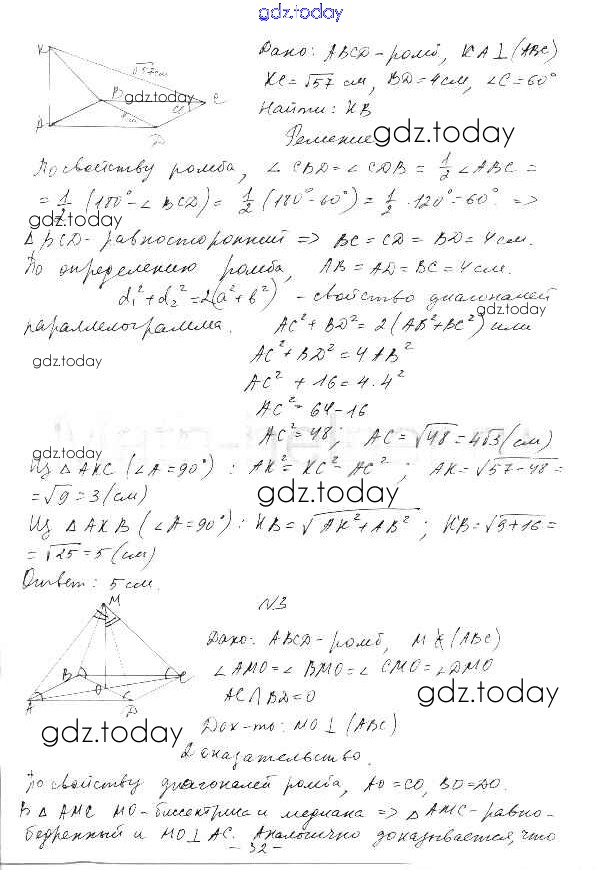 gdz.today
Дано: ABCD-ромб, KA⊥(ABC)
KC=√57 см, BD=4см, ∠C=60°
Найти: KB
Решение
gdz.today
K
√57см
B
gdz.today
C
A
D
По свойству ромба, ∠CBD=∠CDB=1/2∠ABC=
=1/2(180°-∠BCD)=1/2(180°-60°)=1/2·120°-60°. =>
gdz.today
△BCD-равносторонний => BC=CD=BD=4см.
По определению ромба, AB=AD=BC=4см.
d₁²+d₂²=2(a²+b²) - свойство диагоналей
gdz.today
параллелограмма. AC²+BD²=2(AB²+BC²) или
AC²+BD²=4AB²
gdz.today
AC²+16=4·4²
AC²=64-16
AC²=48 AC=√48=4√3(см)
gdz.today
Из △AKC(∠A=90°): AK²=KC²-AC²; AK=√57-48=
=√9=3(см)
gdz.today
Из △AKB(∠A=90°): KB=√AK²+AB²; KB=√9+16=
=√25=5(см)
Ответ: 5см.
M
N3
Дано: ABCD-ромб, M∉(ABC)
∠AMO=∠BMO=∠CMO=∠DMO
AC∩BD=O
gdz.today
B
C
O
A
D
gdz.today
Док-ть: MO⊥(ABC)
Доказательство.
gdz.today
По свойству диагоналей ромба, AO=CO, BO=DO.
В △AMC MO-биссектриса и медиана => △AMC-равно-
бедренный и MO⊥AC. Аналогично доказывается, что
- 32 -